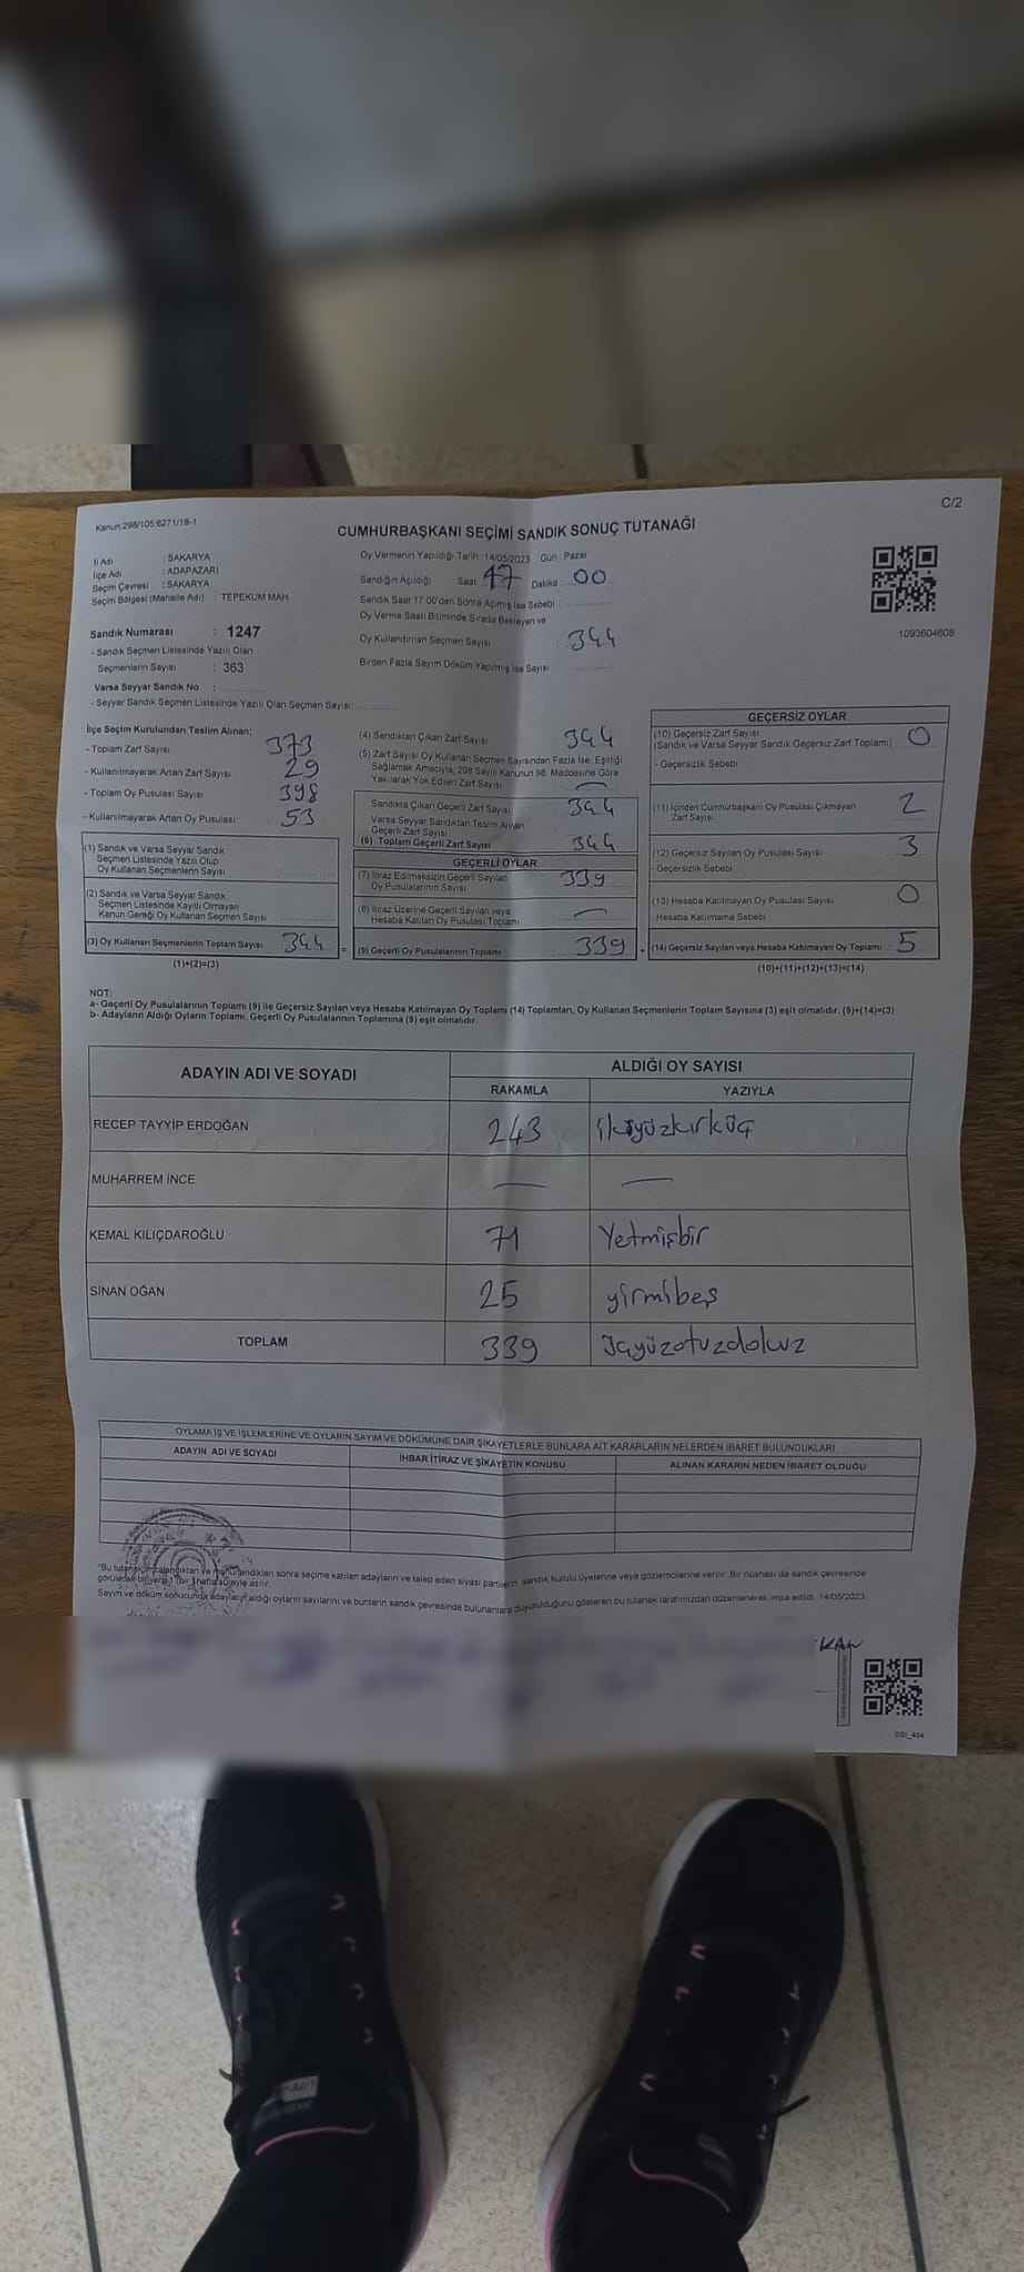 C/2
Kanun:298/105 6271/18-1
CUMHURBAŞKANI SEÇİMİ SANDIK SONUÇ TUTANAĞI
İl Adı : SAKARYA
İlçe Adı : ADAPAZARI
Seçim Çevresi : SAKARYA
Seçim Bölgesi (Mahalle Adı) : TEPEKUM MAH.
Oy Vermenin Yapıldığı Tarih : 14/05/2023 Gün : Pazar
Sandığın Açıldığı Saat 17 Dakika 00
Sandık Saat 17:00'den Sonra Açılmış İse Sebebi :
Oy Verme Saati Bitiminde Sırada Bekleyen ve
Oy Kullandırılan Seçmen Sayısı 344
Birden Fazla Sayım Döküm Yapılmış İse Sayısı
1093604608
Sandık Numarası : 1247
- Sandık Seçmen Listesinde Yazılı Olan
Seçmenlerin Sayısı : 363
Varsa Seyyar Sandık No :
- Seyyar Sandık Seçmen Listesinde Yazılı Olan Seçmen Sayısı:
İlçe Seçim Kurulundan Teslim Alınan:
- Toplam Zarf Sayısı 373
- Kullanılmayarak Artan Zarf Sayısı 29
- Toplam Oy Pusulası Sayısı 398
- Kullanılmayarak Artan Oy Pusulası 53
(1) Sandık ve Varsa Seyyar Sandık
Seçmen Listesinde Yazılı Olup
Oy Kullanan Seçmenlerin Sayısı
(2) Sandık ve Varsa Seyyar Sandık
Seçmen Listesinde Kayıtlı Olmayan
Kanun Gereği Oy Kullanan Seçmen Sayısı
(3) Oy Kullanan Seçmenlerin Toplam Sayısı 344
(1)+(2)=(3)
(4) Sandıktan Çıkan Zarf Sayısı 344
(5) Zarf Sayısı Oy Kullanan Seçmen Sayısından Fazla İse, Eşitliği
Sağlamak Amacıyla, 298 Sayılı Kanunun 98. Maddesine Göre
Yakılarak Yok Edilen Zarf Sayısı —
Sandıkta Çıkan Geçerli Zarf Sayısı 344
Varsa Seyyar Sandıktan Teslim Alınan
Geçerli Zarf Sayısı
(6) Toplam Geçerli Zarf Sayısı 344
GEÇERLİ OYLAR
(7) İtiraz Edilmeksizin Geçerli Sayılan
Oy Pusulalarının Sayısı 339
(8) İtiraz Üzerine Geçerli Sayılan veya
Hesaba Katılan Oy Pusulası Toplamı —
(9) Geçerli Oy Pusulalarının Toplamı 339
GEÇERSİZ OYLAR
(10) Geçersiz Zarf Sayısı 0
(Sandık ve Varsa Seyyar Sandık Geçersiz Zarf Toplamı)
- Geçersizlik Sebebi
(11) İçinden Cumhurbaşkanı Oy Pusulası Çıkmayan
Zarf Sayısı 2
(12) Geçersiz Sayılan Oy Pusulası Sayısı 3
Geçersizlik Sebebi
(13) Hesaba Katılmayan Oy Pusulası Sayısı 0
Hesaba Katılmama Sebebi
(14) Geçersiz Sayılan veya Hesaba Katılmayan Oy Toplamı 5
(10)+(11)+(12)+(13)=(14)
NOT:
a- Geçerli Oy Pusulalarının Toplamı (9) ile Geçersiz Sayılan veya Hesaba Katılmayan Oy Toplamı (14) Toplamları, Oy Kullanan Seçmenlerin Toplam Sayısına (3) eşit olmalıdır. (9)+(14)=(3)
b- Adayların Aldığı Oyların Toplamı, Geçerli Oy Pusulalarının Toplamına (9) eşit olmalıdır.
ADAYIN ADI VE SOYADI ALDIĞI OY SAYISI
RAKAMLA YAZIYLA
RECEP TAYYİP ERDOĞAN 243 ikiyüzkırküç
MUHARREM İNCE — —
KEMAL KILIÇDAROĞLU 71 Yetmişbir
SİNAN OĞAN 25 yirmibeş
TOPLAM 339 üçyüzotuzdokuz
OYLAMA İŞ VE İŞLEMLERİNE VE OYLARIN SAYIM VE DÖKÜMÜNE DAİR ŞİKAYETLERLE BUNLARA AİT KARARLARIN NELERDEN İBARET BULUNDUKLARI
ADAYIN ADI VE SOYADI İHBAR İTİRAZ VE ŞİKAYETİN KONUSU ALINAN KARARIN NEDEN İBARET OLDUĞU
sonra seçime katılan adayların ve talep eden siyasi partilerin sandık kurulu üyelerine veya gözlemcilerine verilir. Bir nüshası da sandık çevresinde
Sayım ve döküm sonucunda adayların aldığı oyların sayılarını ve bunların sandık çevresinde bulunanlara duyurulduğunu gösteren bu tutanak tarafımızdan düzenlenerek imza edildi. 14/05/2023
KAN